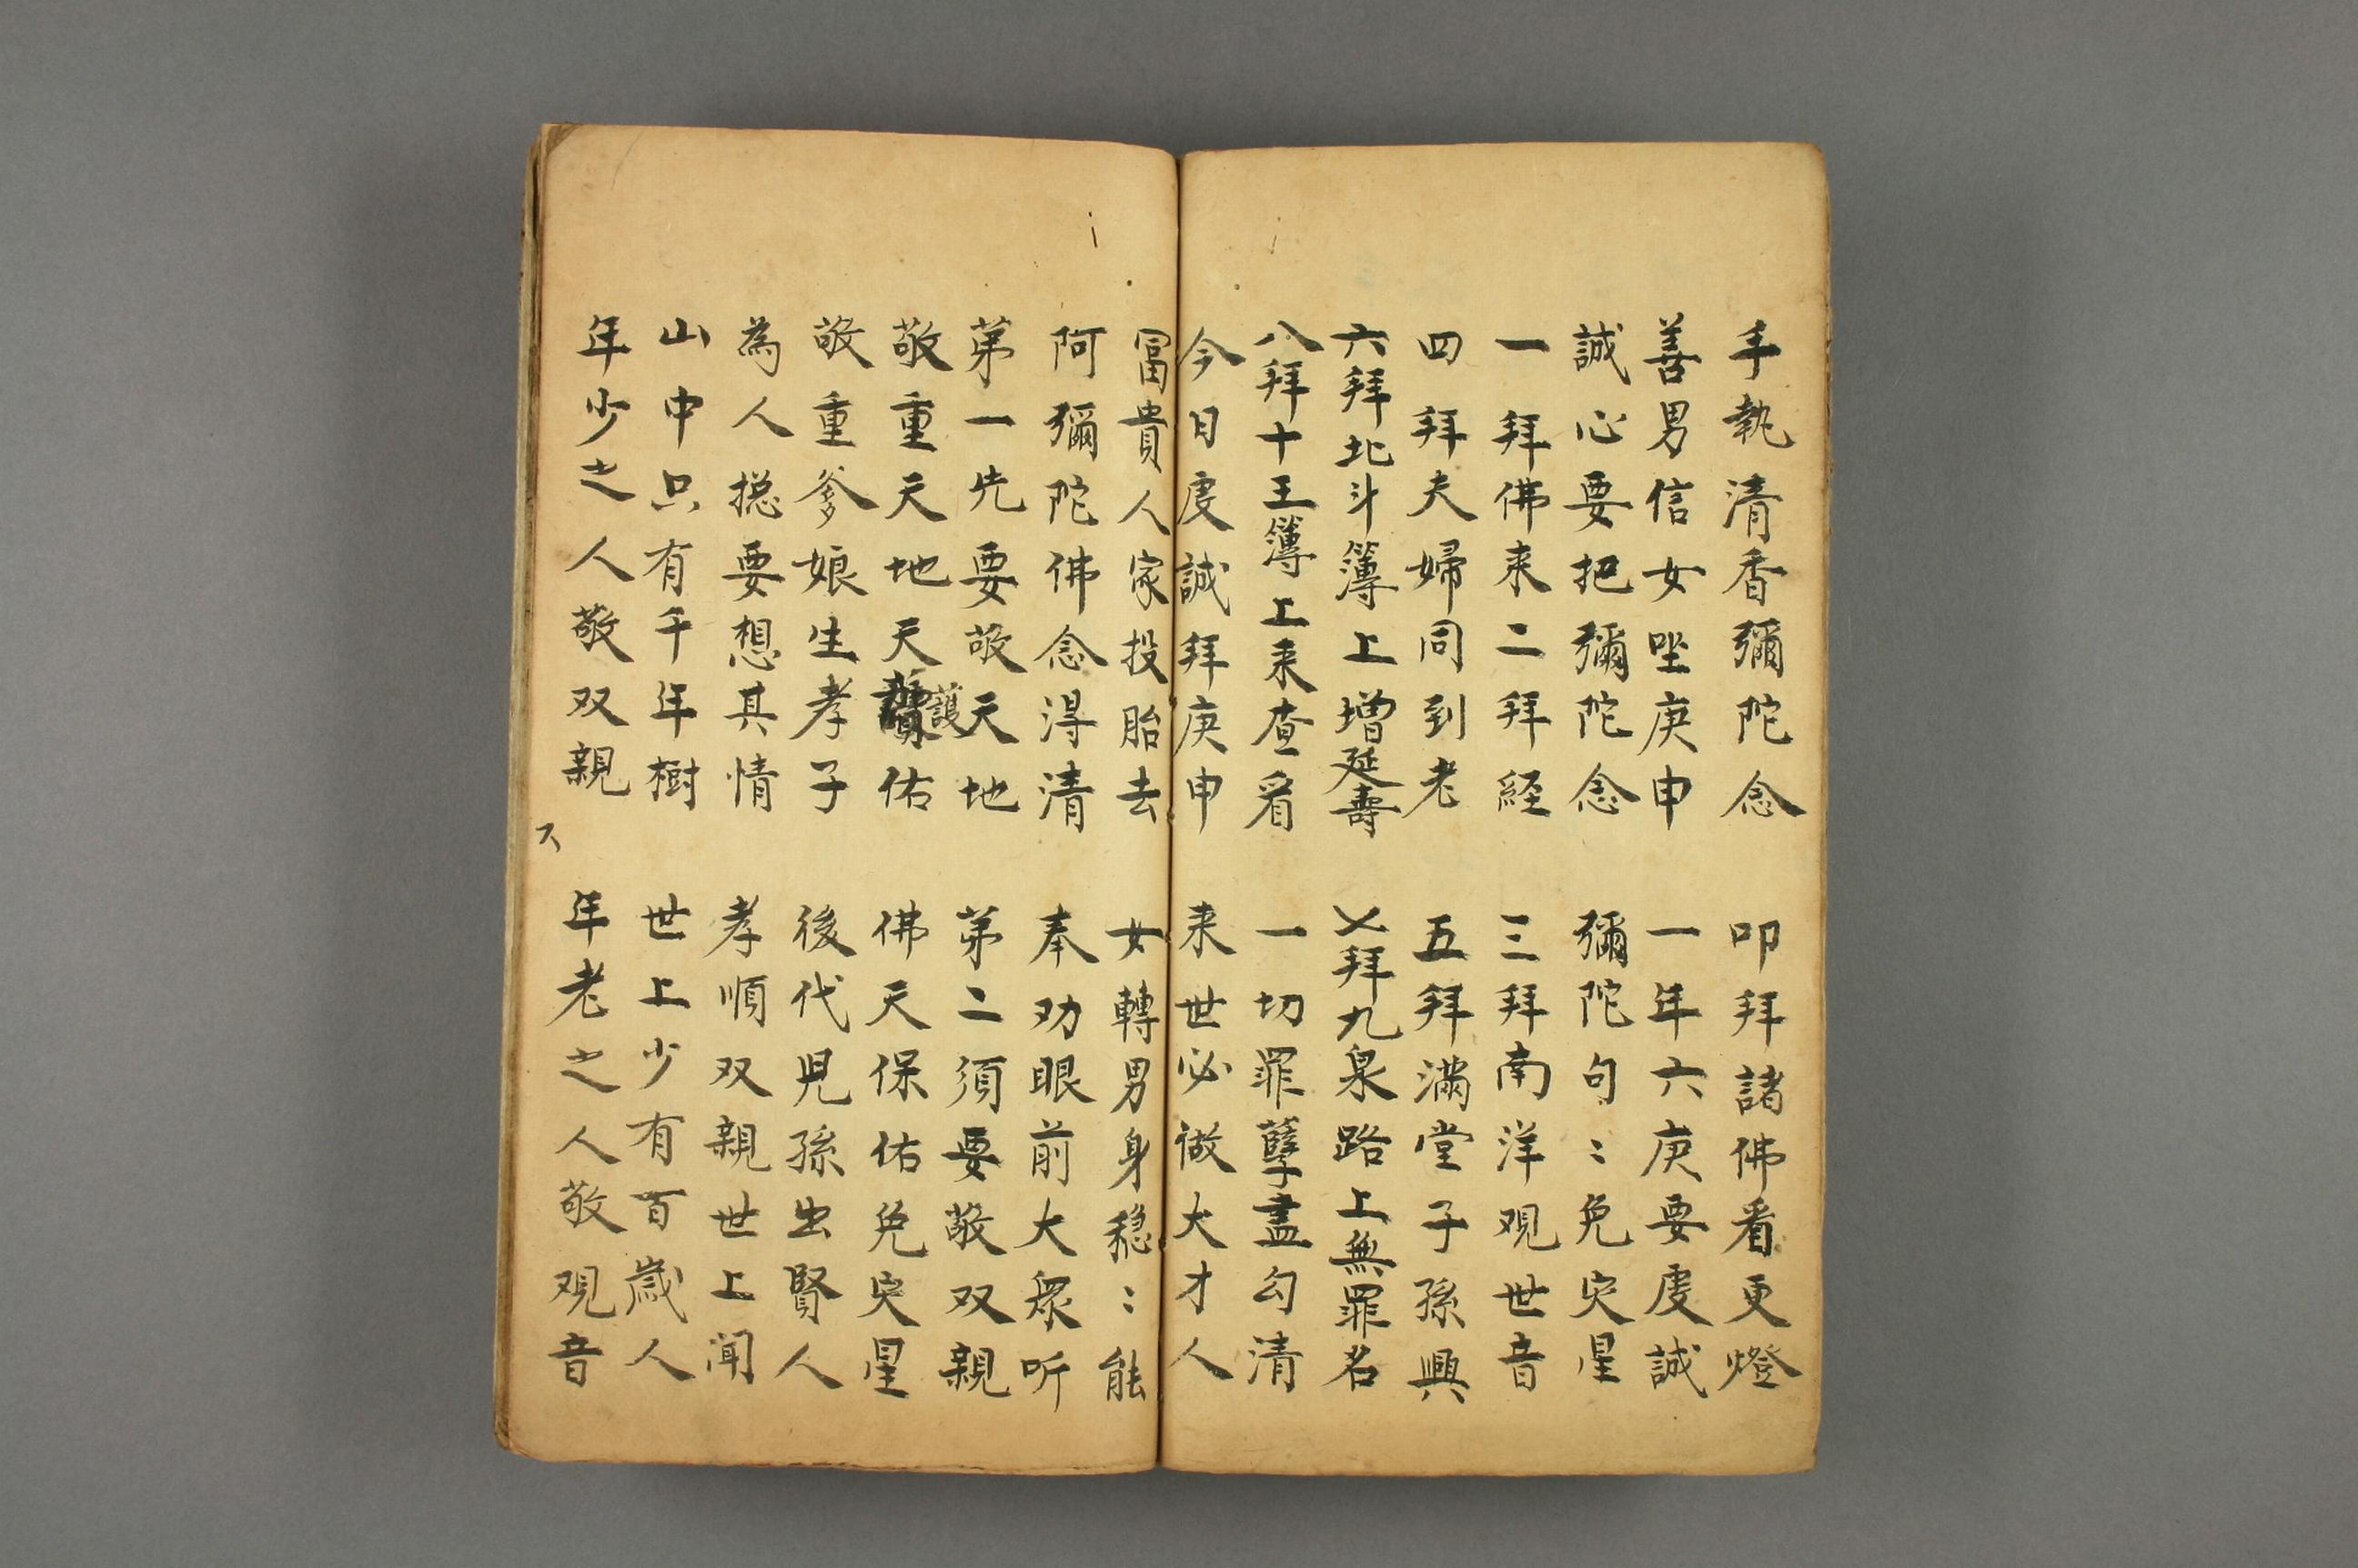 手執清香彌陀念　叩拜諸佛看更燈
善男信女坐庚申　一年六庚要虔誠
誠心要把彌陀念　彌陀句〻免灾星
一拜佛来二拜経　三拜南洋观世音
四拜夫婦同到老　五拜满堂子孫興
六拜北斗簿上增延壽　七拜九泉路上無罪名
八拜十王簿上来查看　一切罪孽盡勾清
今日虔誠拜庚申　来世必做大才人
冨貴人家投胎去　女轉男身穩〻能
阿彌陀佛念淂清　奉劝眼前大眾听
苐一先要敬天地　苐二須要敬双親
敬重天地天護佑　佛天保佑免灾星
敬重爹娘生孝子　後代児孫出賢人
為人捴要想其情　孝順双親世上闻
山中只有千年樹　世上少有百歲人
年少之人敬双親　年老之人敬观音